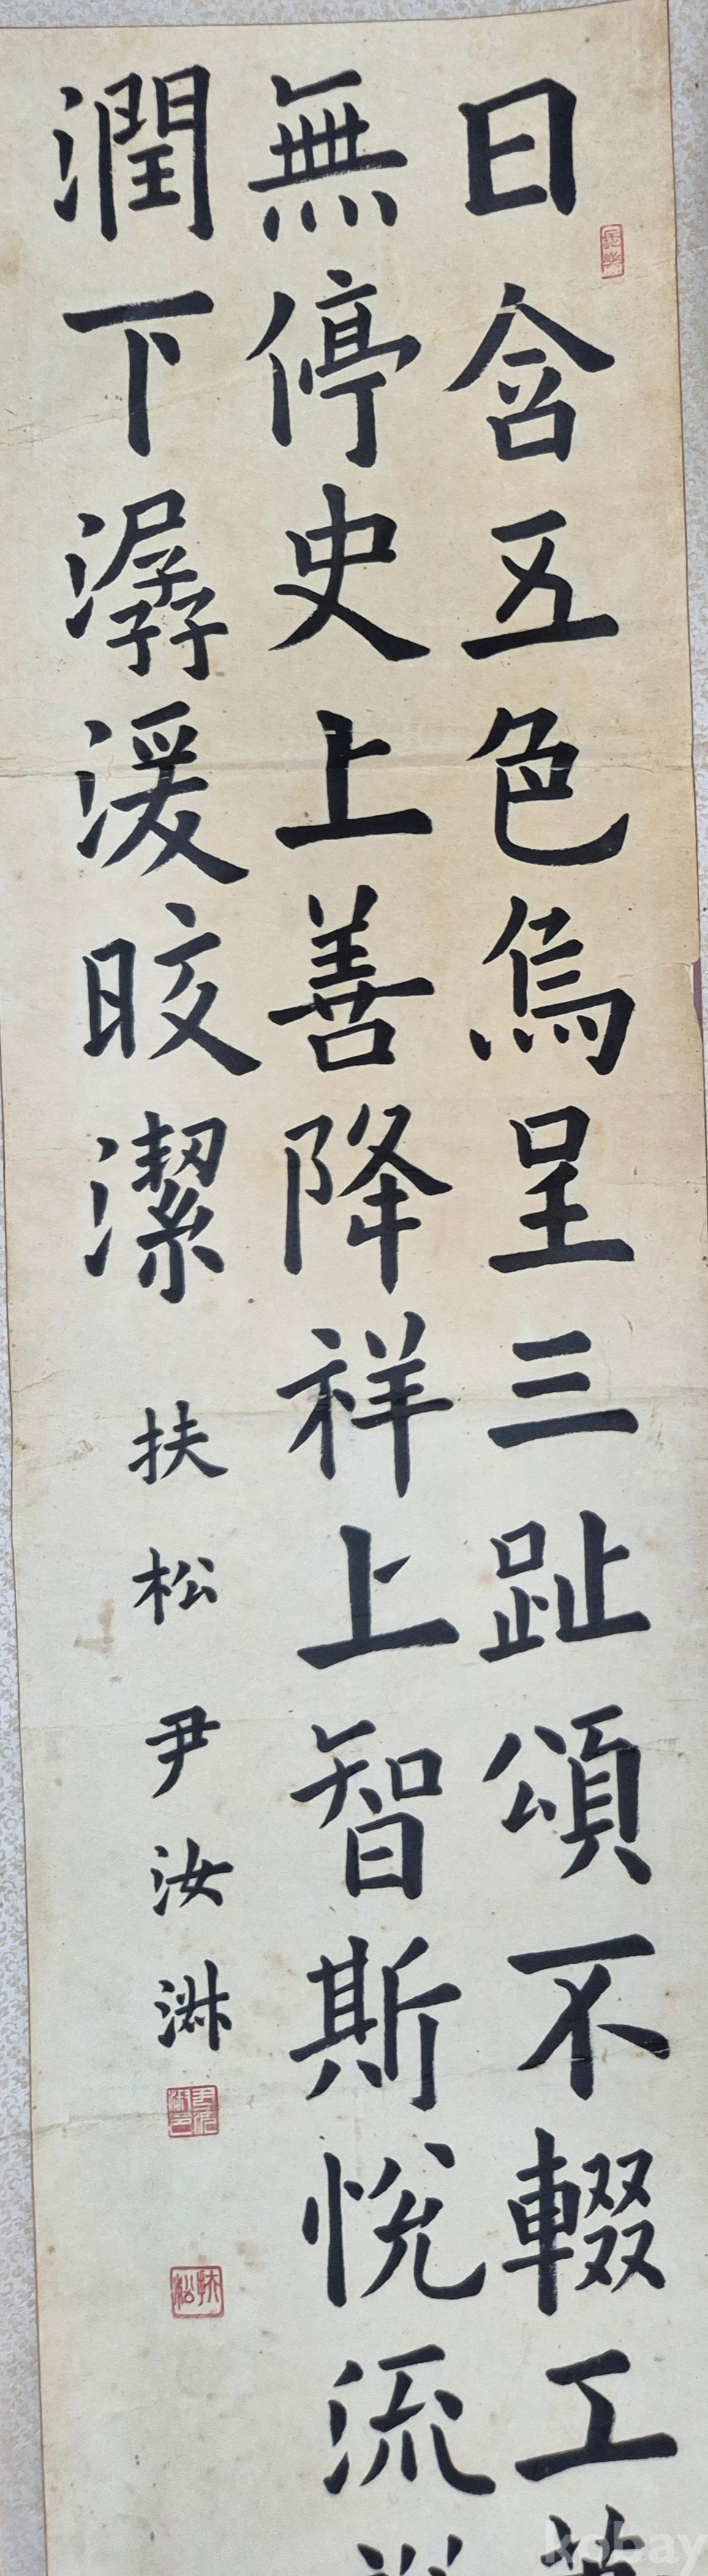 日含五色烏呈三趾頌不輟工
無停史上善降祥上智斯悅流
潤下潺湲皎潔
扶松 尹汝淋
kobay